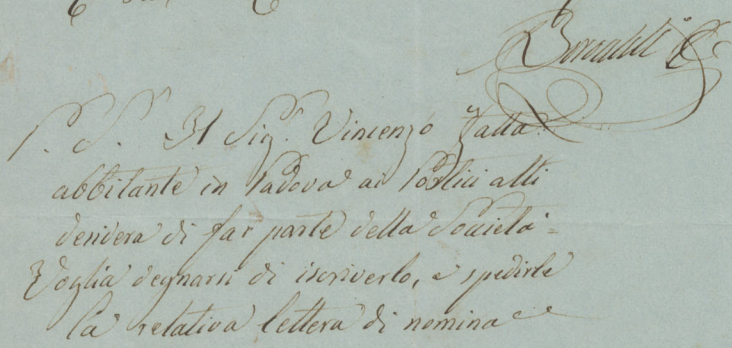 P. S. Il Sig.r Vincenzo Zatta
abbitante in Padova ai Portici alti
desidera di far parte della Società =
Voglia degnarsi di iscriverlo, e spedirle
la relativa lettera di nomina